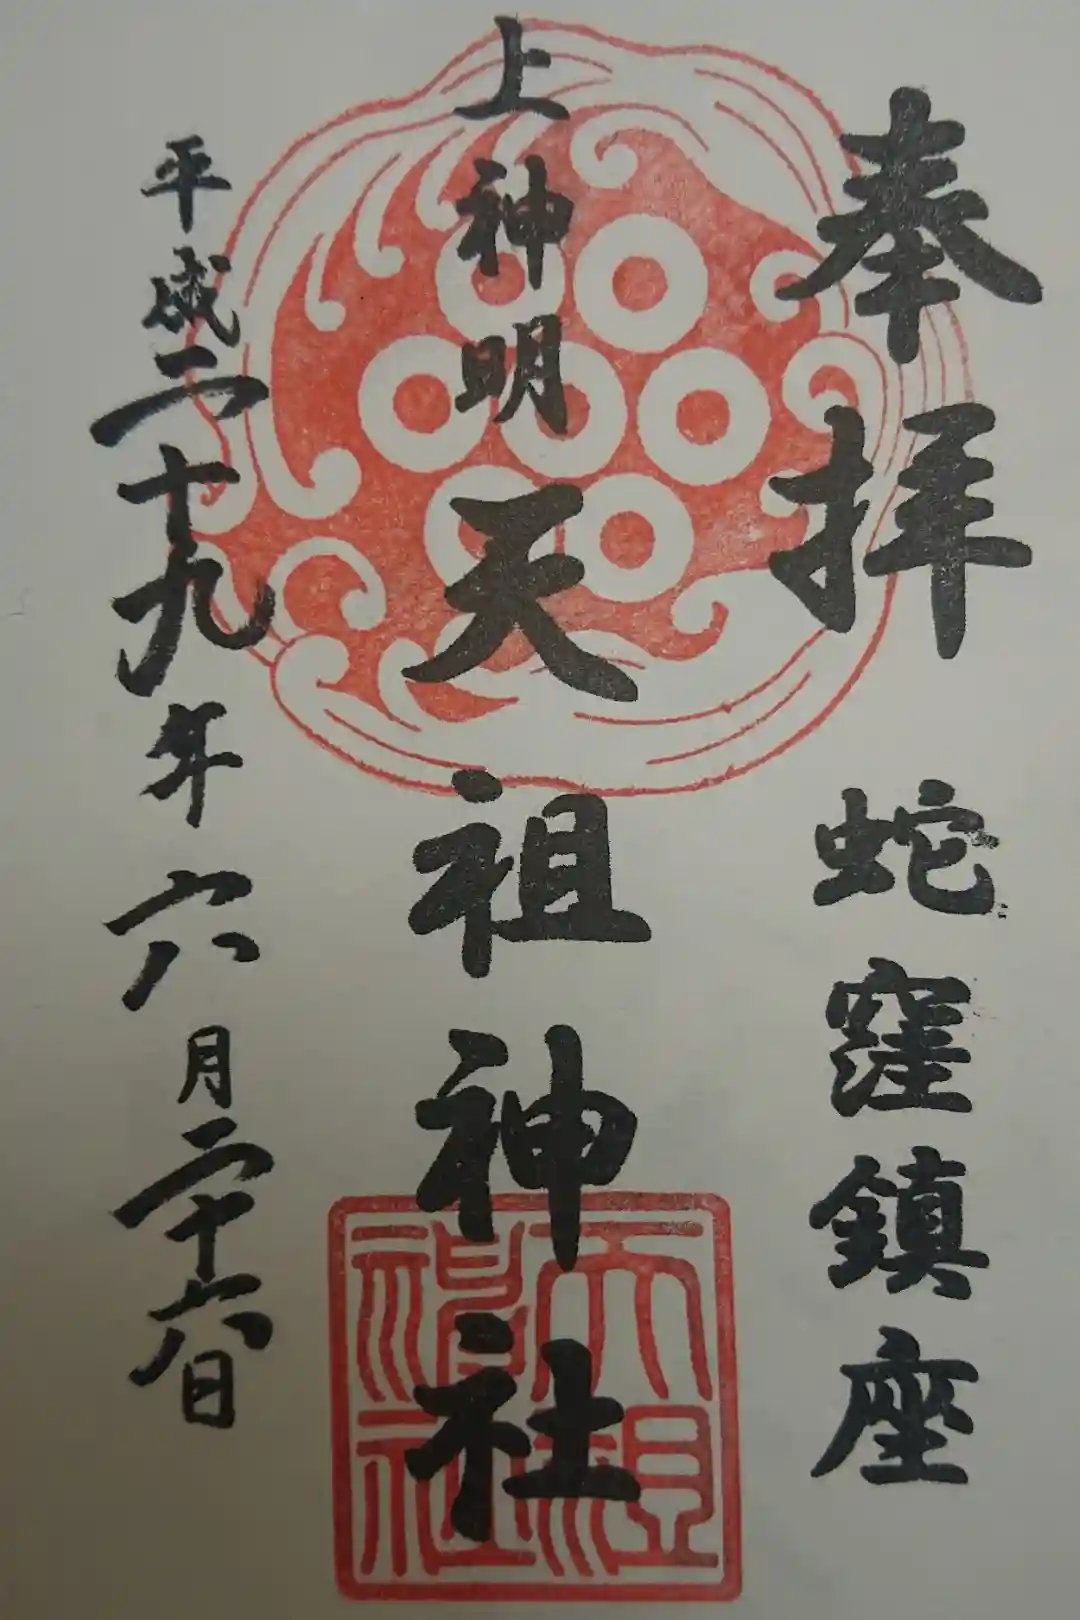 奉拝 蛇窪鎮座
上神明 天祖神社
天祖神社
平成二十九年 六月二十六日